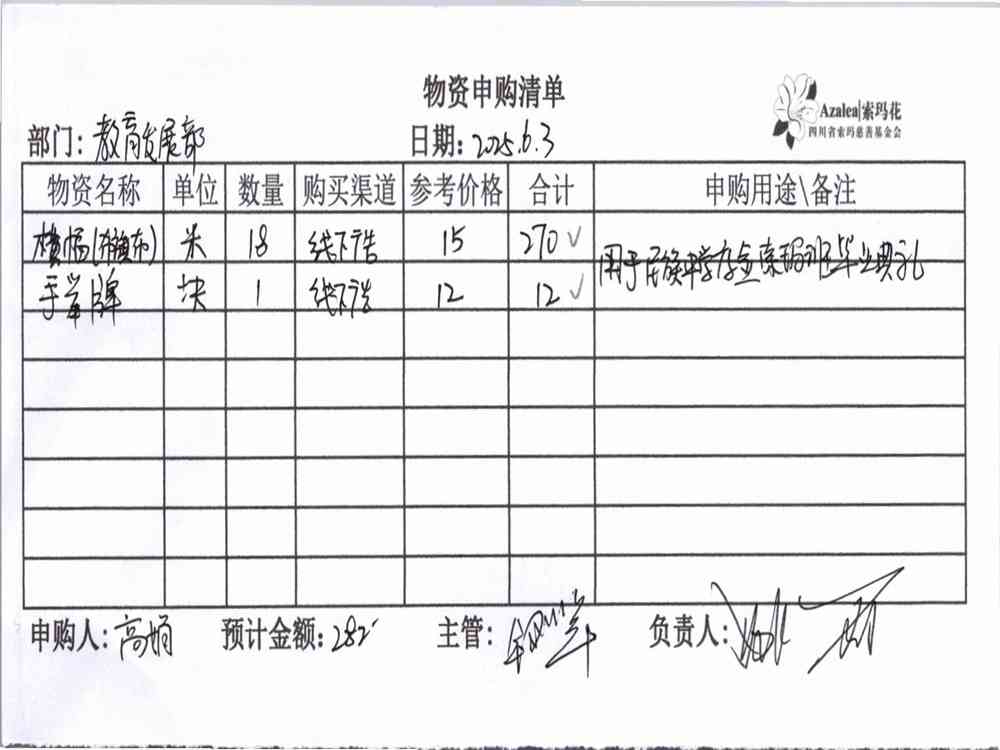 物资申购清单
Azalea|索玛花
四川省索玛慈善基金会
部门：教育发展部 日期：2025.6.3
物资名称 单位 数量 购买渠道 参考价格 合计 申购用途\备注
横幅(布) 米 18 线下 15 270✓ 用于民族中学 索玛班毕业典礼
手举牌 块 1 线下 12 12✓
申购人：高娟 预计金额：282 主管： 负责人：